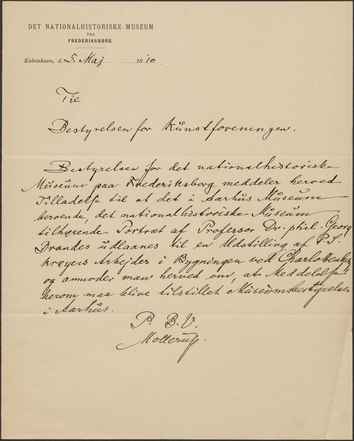 DET NATIONALHISTORISKE MUSEUM
PAA
FREDERIKSBORG.
København, d. 5 Maj 1910
Til
Bestyrelsen for Kunstforeningen.
Bestyrelsen for det nationalhistoriske
Museum paa Frederiksborg meddeler herved
Tilladelse til at det i Aarhus Museum
beroende, det nationalhistoriske Museum
tilhørende Portræt af Professor Dr. phil. Georg
Brandes udlaanes til en Udstilling af P. S.
Krøyers Arbejder i Bygningen ved Charlottenborg
og anmoder man herved om, at Meddelelse
herom maa blive tilstillet Museumsbestyrelsen
i Aarhus.
P. B. V.
Mollerup.